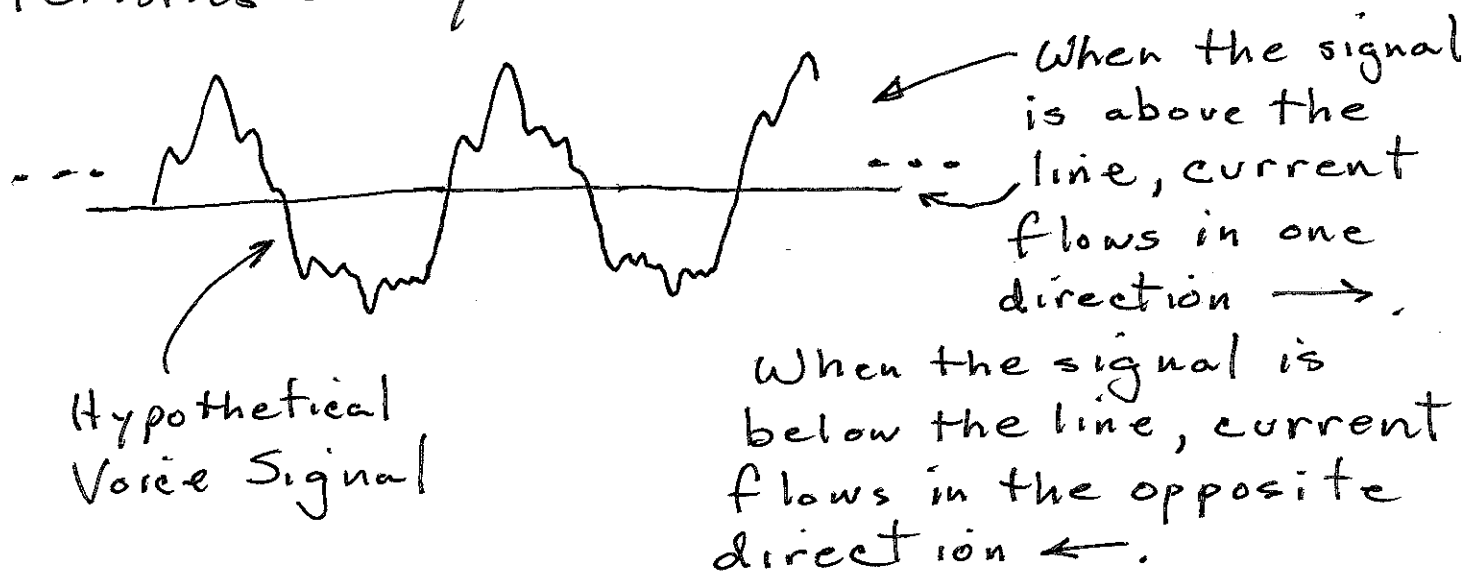 When the signal
is above the
line, current
flows in one
direction →.
Hypothetical
Voice Signal
When the signal is
below the line, current
flows in the opposite
direction ←.